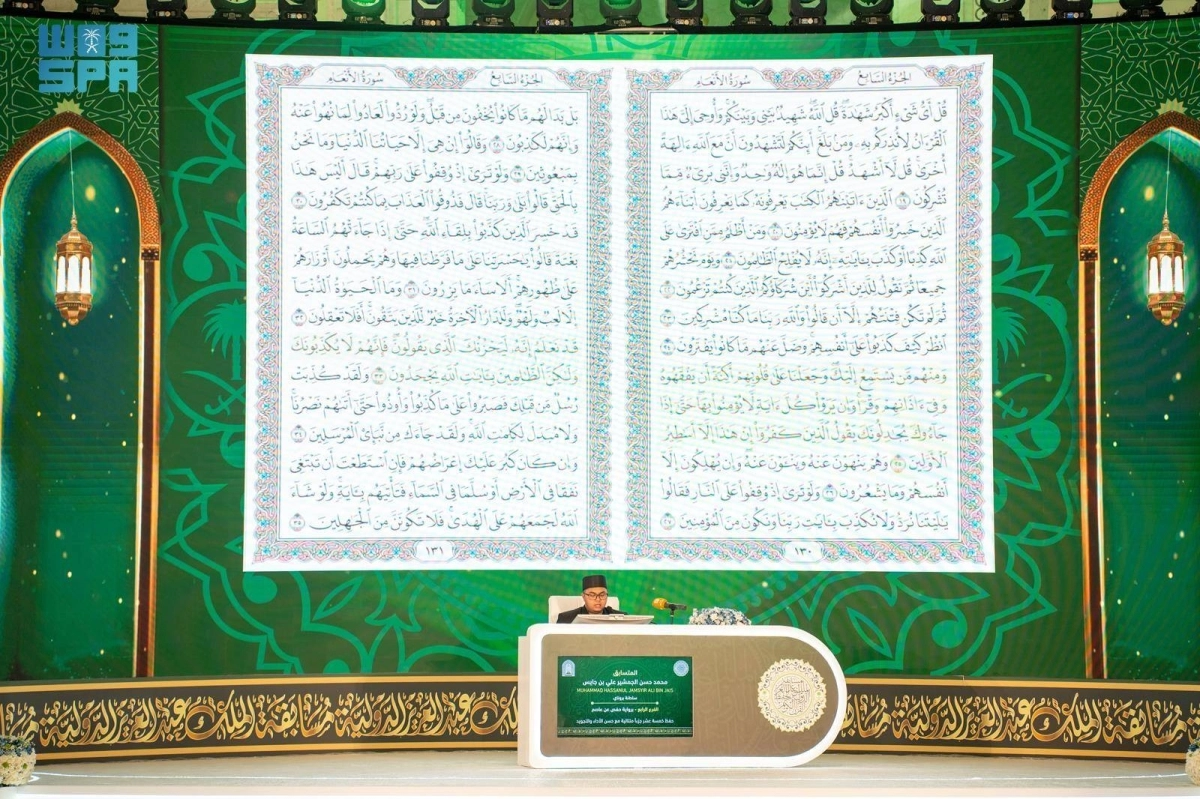 واس
SPA
الجزء السابع
سورة الأنعام
قُلْ أَىُّ شَىْءٍ أَكْبَرُ شَهَٰدَةً قُلِ ٱللَّهُ شَهِيدٌۢ بَيْنِى وَبَيْنَكُمْ وَأُوحِىَ إِلَىَّ هَٰذَا
ٱلْقُرْءَانُ لِأُنذِرَكُم بِهِۦ وَمَنۢ بَلَغَ أَئِنَّكُمْ لَتَشْهَدُونَ أَنَّ مَعَ ٱللَّهِ ءَالِهَةً
أُخْرَىٰ قُل لَّآ أَشْهَدُ قُلْ إِنَّمَا هُوَ إِلَٰهٌ وَٰحِدٌ وَإِنَّنِى بَرِىٓءٌ مِّمَّا
تُشْرِكُونَ ١٩ ٱلَّذِينَ ءَاتَيْنَٰهُمُ ٱلْكِتَٰبَ يَعْرِفُونَهُۥ كَمَا يَعْرِفُونَ أَبْنَآءَهُمُ
ٱلَّذِينَ خَسِرُوٓا۟ أَنفُسَهُمْ فَهُمْ لَا يُؤْمِنُونَ ٢٠ وَمَنْ أَظْلَمُ مِمَّنِ ٱفْتَرَىٰ عَلَى
ٱللَّهِ كَذِبًا أَوْ كَذَّبَ بِـَٔايَٰتِهِۦٓ إِنَّهُۥ لَا يُفْلِحُ ٱلظَّٰلِمُونَ ٢١ وَيَوْمَ نَحْشُرُهُمْ
جَمِيعًا ثُمَّ نَقُولُ لِلَّذِينَ أَشْرَكُوٓا۟ أَيْنَ شُرَكَآؤُكُمُ ٱلَّذِينَ كُنتُمْ تَزْعُمُونَ ٢٢
ثُمَّ لَمْ تَكُن فِتْنَتُهُمْ إِلَّآ أَن قَالُوا۟ وَٱللَّهِ رَبِّنَا مَا كُنَّا مُشْرِكِينَ ٢٣
ٱنظُرْ كَيْفَ كَذَبُوا۟ عَلَىٰٓ أَنفُسِهِمْ وَضَلَّ عَنْهُم مَّا كَانُوا۟ يَفْتَرُونَ ٢٤
وَمِنْهُم مَّن يَسْتَمِعُ إِلَيْكَ وَجَعَلْنَا عَلَىٰ قُلُوبِهِمْ أَكِنَّةً أَن يَفْقَهُوهُ
وَفِىٓ ءَاذَانِهِمْ وَقْرًا وَإِن يَرَوْا۟ كُلَّ ءَايَةٍ لَّا يُؤْمِنُوا۟ بِهَا حَتَّىٰٓ إِذَا
جَآءُوكَ يُجَٰدِلُونَكَ يَقُولُ ٱلَّذِينَ كَفَرُوٓا۟ إِنْ هَٰذَآ إِلَّآ أَسَٰطِيرُ
ٱلْأَوَّلِينَ ٢٥ وَهُمْ يَنْهَوْنَ عَنْهُ وَيَنْـَٔوْنَ عَنْهُ وَإِن يُهْلِكُونَ إِلَّآ
أَنفُسَهُمْ وَمَا يَشْعُرُونَ ٢٦ وَلَوْ تَرَىٰٓ إِذْ وُقِفُوا۟ عَلَى ٱلنَّارِ فَقَالُوا۟
يَٰلَيْتَنَا نُرَدُّ وَلَا نُكَذِّبَ بِـَٔايَٰتِ رَبِّنَا وَنَكُونَ مِنَ ٱلْمُؤْمِنِينَ ٢٧
١٣٠
الجزء السابع
سورة الأنعام
بَلْ بَدَا لَهُم مَّا كَانُوا۟ يُخْفُونَ مِن قَبْلُ وَلَوْ رُدُّوا۟ لَعَادُوا۟ لِمَا نُهُوا۟ عَنْهُ
وَإِنَّهُمْ لَكَٰذِبُونَ ٢٨ وَقَالُوٓا۟ إِنْ هِىَ إِلَّا حَيَاتُنَا ٱلدُّنْيَا وَمَا نَحْنُ
بِمَبْعُوثِينَ ٢٩ وَلَوْ تَرَىٰٓ إِذْ وُقِفُوا۟ عَلَىٰ رَبِّهِمْ قَالَ أَلَيْسَ هَٰذَا
بِٱلْحَقِّ قَالُوا۟ بَلَىٰ وَرَبِّنَا قَالَ فَذُوقُوا۟ ٱلْعَذَابَ بِمَا كُنتُمْ تَكْفُرُونَ ٣٠
قَدْ خَسِرَ ٱلَّذِينَ كَذَّبُوا۟ بِلِقَآءِ ٱللَّهِ حَتَّىٰٓ إِذَا جَآءَتْهُمُ ٱلسَّاعَةُ
بَغْتَةً قَالُوا۟ يَٰحَسْرَتَنَا عَلَىٰ مَا فَرَّطْنَا فِيهَا وَهُمْ يَحْمِلُونَ أَوْزَارَهُمْ
عَلَىٰ ظُهُورِهِمْ أَلَا سَآءَ مَا يَزِرُونَ ٣١ وَمَا ٱلْحَيَوٰةُ ٱلدُّنْيَآ
إِلَّا لَعِبٌ وَلَهْوٌ وَلَلدَّارُ ٱلْءَاخِرَةُ خَيْرٌ لِّلَّذِينَ يَتَّقُونَ أَفَلَا تَعْقِلُونَ ٣٢
قَدْ نَعْلَمُ إِنَّهُۥ لَيَحْزُنُكَ ٱلَّذِى يَقُولُونَ فَإِنَّهُمْ لَا يُكَذِّبُونَكَ
وَلَٰكِنَّ ٱلظَّٰلِمِينَ بِـَٔايَٰتِ ٱللَّهِ يَجْحَدُونَ ٣٣ وَلَقَدْ كُذِّبَتْ
رُسُلٌ مِّن قَبْلِكَ فَصَبَرُوا۟ عَلَىٰ مَا كُذِّبُوا۟ وَأُوذُوا۟ حَتَّىٰٓ أَتَىٰهُمْ نَصْرُنَا
وَلَا مُبَدِّلَ لِكَلِمَٰتِ ٱللَّهِ وَلَقَدْ جَآءَكَ مِن نَّبَإِى۟ ٱلْمُرْسَلِينَ ٣٤
وَإِن كَانَ كَبُرَ عَلَيْكَ إِعْرَاضُهُمْ فَإِنِ ٱسْتَطَعْتَ أَن تَبْتَغِىَ
نَفَقًا فِى ٱلْأَرْضِ أَوْ سُلَّمًا فِى ٱلسَّمَآءِ فَتَأْتِيَهُم بِـَٔايَةٍ وَلَوْ شَآءَ
ٱللَّهُ لَجَمَعَهُمْ عَلَى ٱلْهُدَىٰ فَلَا تَكُونَنَّ مِنَ ٱلْجَٰهِلِينَ ٣٥
١٣١
المتسابق
محمد حسن الجمشير علي بن جايس
MUHAMMAD HASSANUL JAMSYIR ALI BIN JAIS
سلطنة بروناي
الفرع الرابع - برواية حفص عن عاصم
حفظ خمسة عشر جزءاً متتالية مع حسن الأداء والتجويد
مسابقة الملك عبدالعزيز الدولية
مسابقة الملك عبدالعزيز الدولية